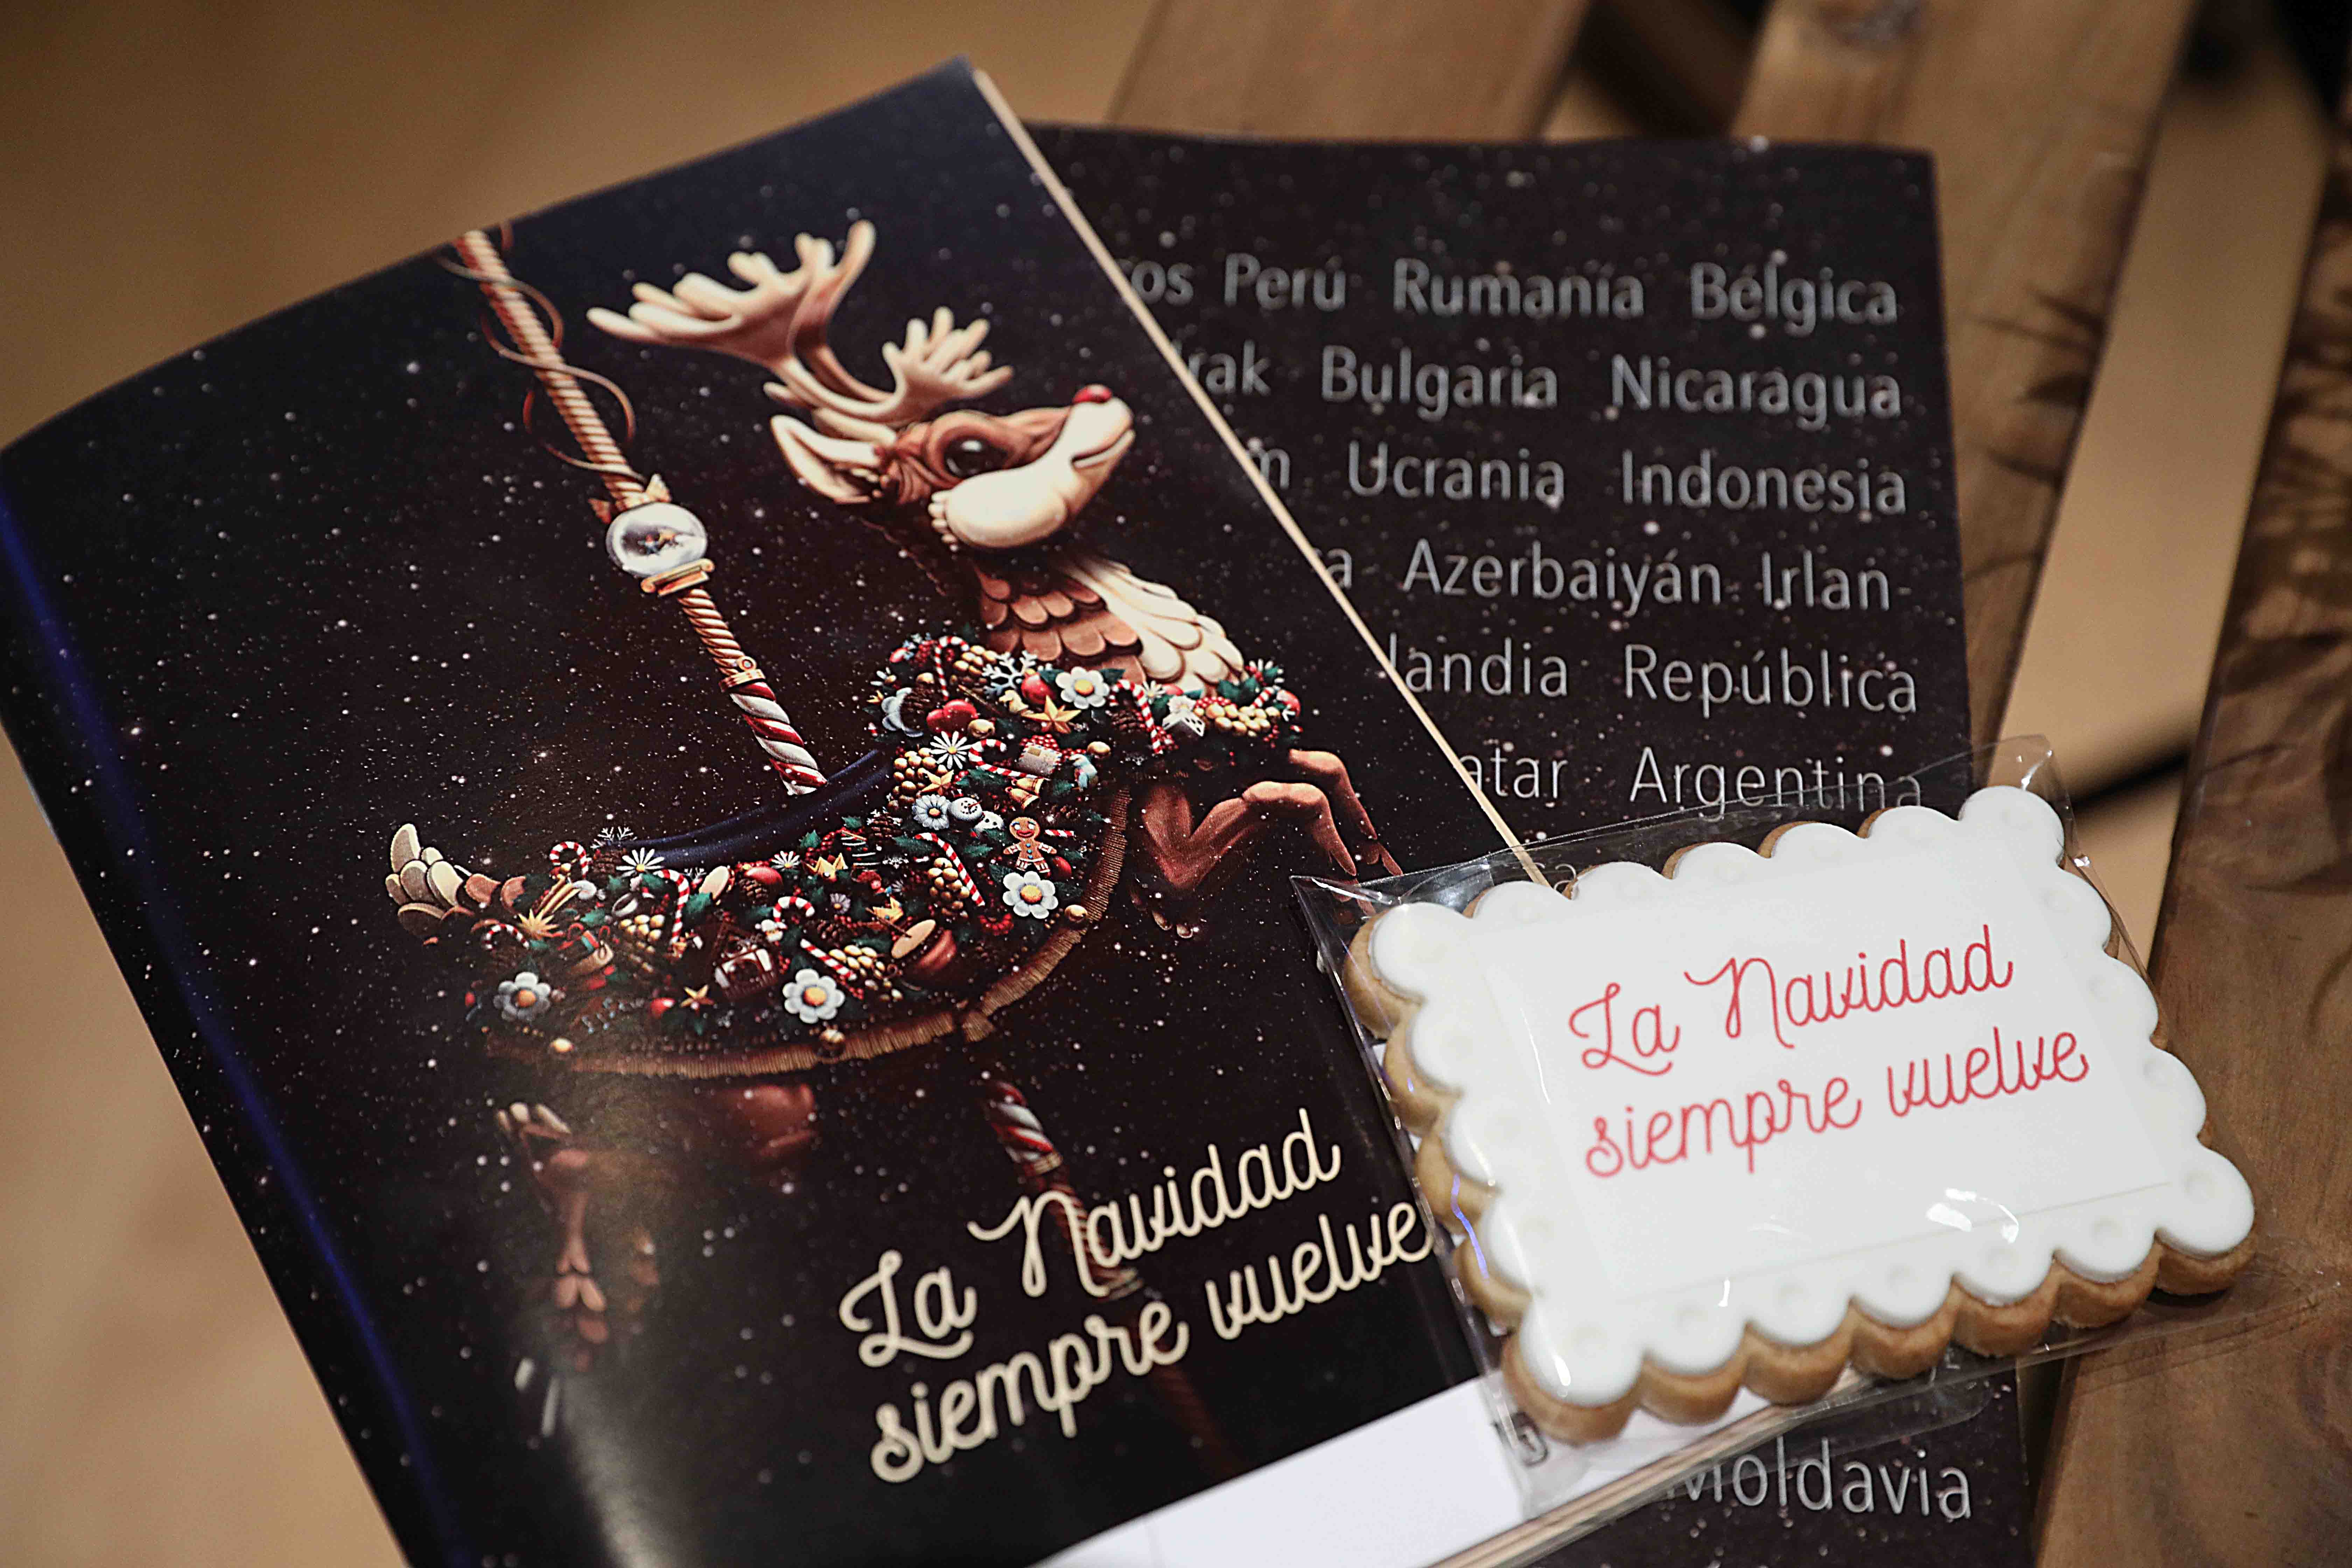 La Navidad
siempre vuelve
Perú Rumanía Bélgica
Bulgaria Nicaragua
Ucrania Indonesia
Azerbaiyán Irlan-
landia República
Argentina
La Navidad
siempre vuelve
Moldavia